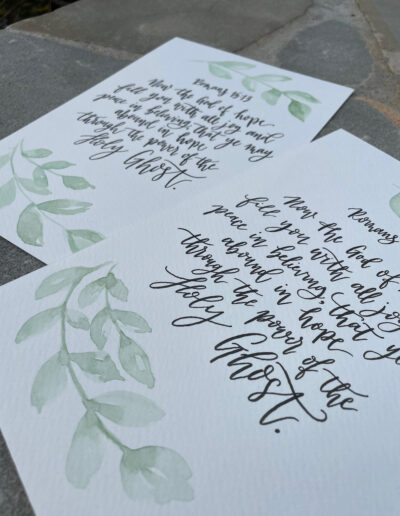 Romans 15:13
Now the God of hope
fill you with all joy and
peace in believing, that ye may
abound in hope
through the power of the
Holy Ghost.
Romans
Now the God of
fill you with all joy
peace in believing, that ye
abound in hope
through the power of the
Holy
Ghost.